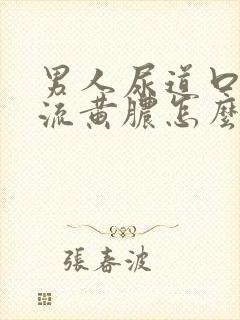 男人尿道口
流黄膿怎麼
張春波